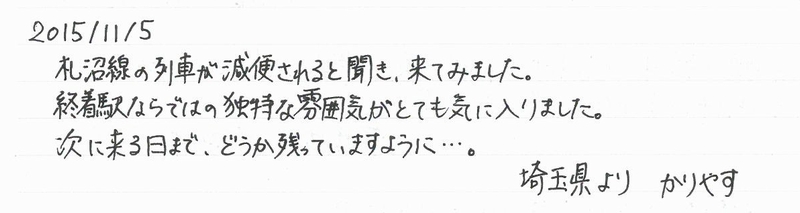 2015/11/5
札沼線の列車が減便されると聞き、来てみました。
終着駅ならではの独特な雰囲気がとても気に入りました。
次に来る日まで、どうか残っていますように…。
埼玉県より かりやす